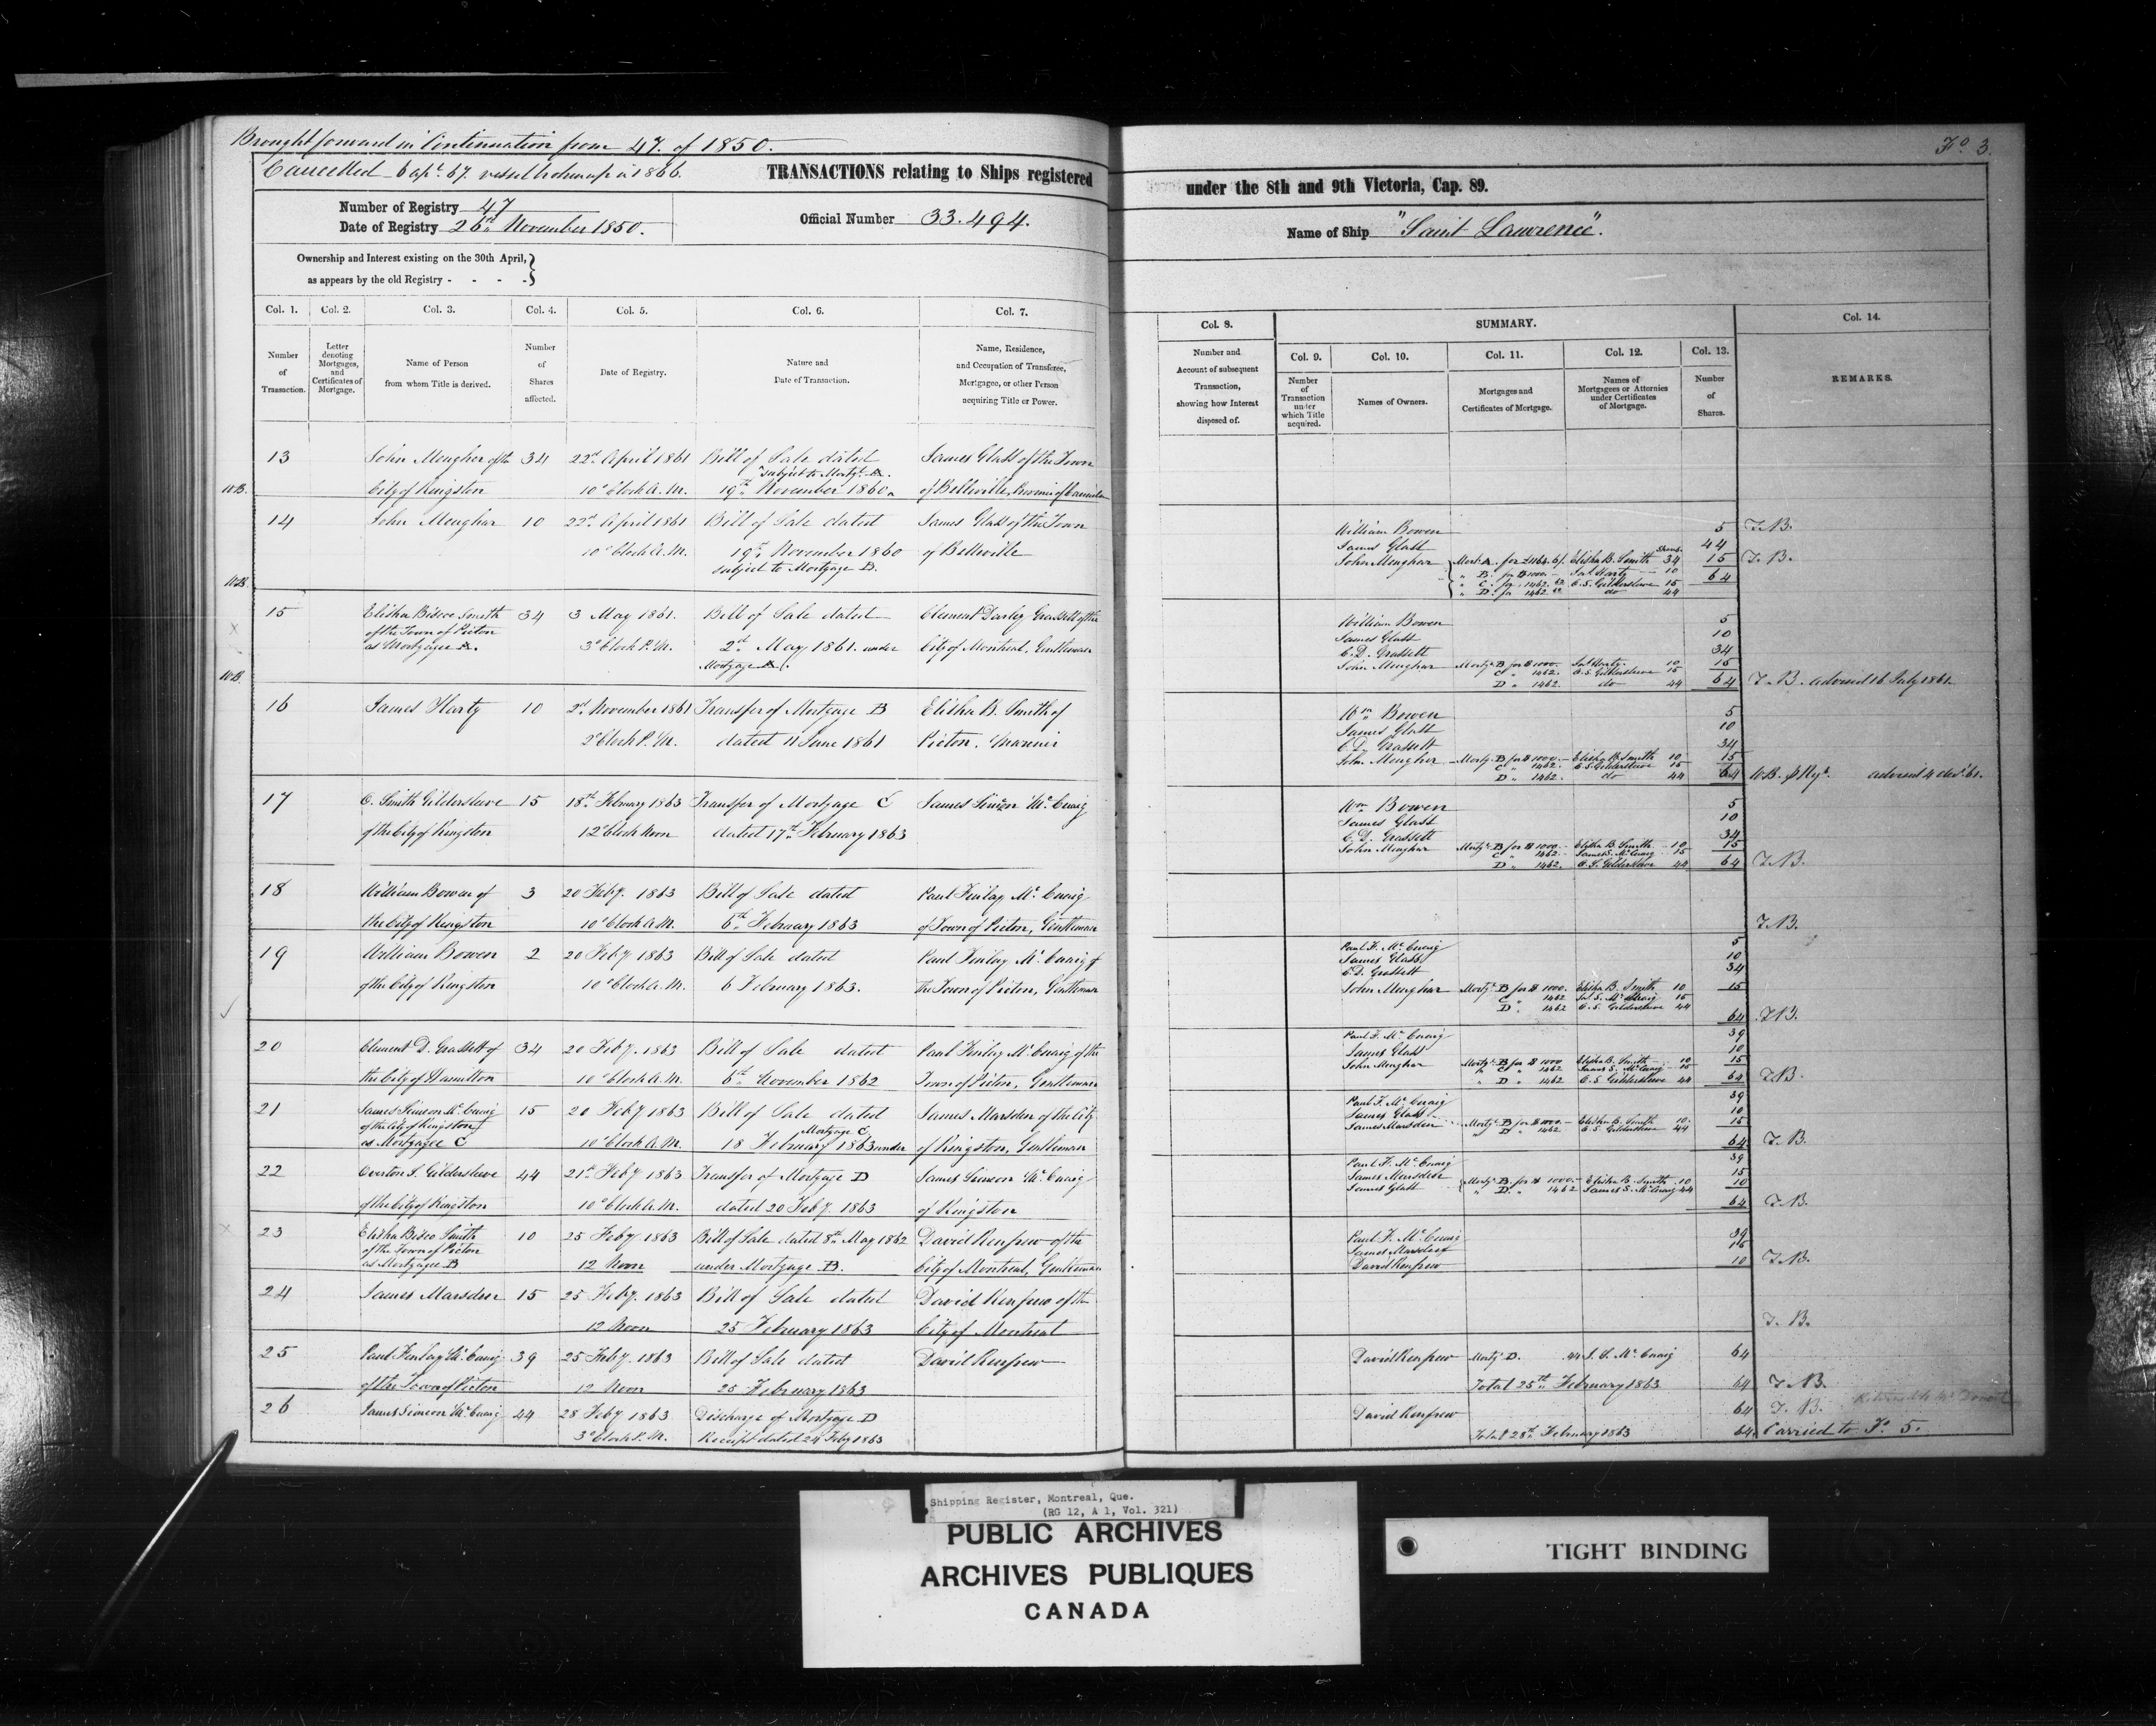 Brought forward in Continuation from 47. of 1850.
Fo. 3.
Cancelled 6 apl. 67. vessel broken up in 1866.
TRANSACTIONS relating to Ships registered under the 8th and 9th Victoria, Cap. 89.
Number of Registry 47
Date of Registry 26th November 1850.
Official Number 33.494.
Name of Ship "Saint Lawrence".
Ownership and Interest existing on the 30th April,
as appears by the old Registry - - - -
Col. 1. Col. 2. Col. 3. Col. 4. Col. 5. Col. 6. Col. 7.
Number of Transaction.
Letter denoting Mortgages, and Certificates of Mortgage.
Name of Person from whom Title is derived.
Number of Shares affected.
Date of Registry.
Nature and Date of Transaction.
Name, Residence, and Occupation of Transferee, Mortgagee, or other Person acquiring Title or Power.
13 John Meagher of the 34 22d April 1861 Bill of Sale dated James Glass of the Town
subject to Mortge. A.
W.B. City of Kingston 10 o'Clock A.M. 19th November 1860 of Belleville, Province of Canada
14 John Meaghar 10 22d April 1861 Bill of Sale dated James Glass of the Town
10 o'Clock A.M. 19th November 1860 of Belleville
subject to Mortgage B.
W.B.
15 Elisha Bisco Smith 34 3 May 1861. Bill of Sale dated Clement Darley Grassett of the
of the Town of Picton
as Mortgagee A. 3 o'Clock P.M. 2d May 1861. under City of Montreal, Gentleman
Mortgage A.
W.B.
16 James Harty 10 2d November 1861 Transfer of Mortgage B Elisha B. Smith of
2 o'Clock P.M. dated 11 June 1861 Picton, Mariner
17 O. Smith Gildersleeve 15 18th February 1863 Transfer of Mortgage C James Simeon McCuaig
of the City of Kingston 12 o'Clock Noon dated 17th February 1863
18 William Bowen of 3 20 Feby. 1863 Bill of Sale dated Paul Finlay McCuaig
the City of Kingston 10 o'Clock A.M. 6th February 1863 of Town of Picton, Gentleman
19 William Bowen 2 20 Feby 1863 Bill of Sale dated Paul Finlay McCuaig of
of the City of Kingston 10 o'Clock A.M. 6 February 1863. the Town of Picton, Gentleman
20 Clement D. Grassett of 34 20 Feby. 1863 Bill of Sale dated Paul Finlay McCuaig of the
the City of Hamilton 10 o'Clock A.M. 6th November 1862 Town of Picton, Gentleman
21 James Simeon McCuaig 15 20 Feby 1863 Bill of Sale dated James Marsden of the City
of the City of Kingston
as Mortgagee C 10 o'Clock A.M. 18 February 1863 under Mortgage C of Kingston, Gentleman
22 Overton S. Gildersleeve 44 21st Feby 1863 Transfer of Mortgage D James Simeon McCuaig
of the City of Kingston 10 o'Clock A.M. dated 20 Feby. 1863 of Kingston
23 Elisha Bisco Smith 10 25 Feby 1863 Bill of Sale dated 8th May 1862 David Renfrew of the
of the Town of Picton
as Mortgagee B 12 Noon under Mortgage B. City of Montreal, Gentleman
24 James Marsden 15 25 Feby. 1863 Bill of Sale dated David Renfrew of the
12 Noon 25 February 1863 City of Montreal
25 Paul Finlay McCuaig 39 25 Feby 1863 Bill of Sale dated David Renfrew
of the Town of Picton 12 Noon 25 February 1863
26 James Simeon McCuaig 44 28 Feby 1863 Discharge of Mortgage D
3 o'Clock P.M. Receipt dated 24 Feby 1863
Col. 8. SUMMARY. Col. 14.
Col. 9. Col. 10. Col. 11. Col. 12. Col. 13.
Number and Account of subsequent Transaction, showing how Interest disposed of.
Number of Transaction under which Title acquired.
Names of Owners.
Mortgages and Certificates of Mortgage.
Names of Mortgagees or Attornies under Certificates of Mortgage.
Number of Shares.
REMARKS.
William Bowen 5 T.B.
James Glass Shares. 44
John Meaghar Mort: A. for £1164.6/. Elisha B. Smith 34 15 T.B.
" B. for $1000.- Jas Harty 10 64
" C. for 1462. O.S. Gildersleeve 15
" D. for 1462. do 44
William Bowen 5
James Glass 10
C.D. Grassett 34
John Meaghar Mortg. B for $1000. Jas Harty 10 15
C " 1462. O.S. Gildersleeve 15
D " 1462. do 44 64 T.B. advised 16 July 1861.
Wm Bowen 5
James Glass 10
C.D. Grassett 34
John Meagher Mortg. B for $1000.- Elisha B. Smith 10 15
C " 1462. O.S. Gildersleeve 15
D " 1462. do 44 64 W.B. advised 4 decr. 61.
Wm Bowen 5
James Glass 10
C.D. Grassett 34
John Meaghar Mortg. B for $1000.- Elisha B. Smith 10 15
C " 1462.- James S. McCuaig 15
D " 1462. O.S. Gildersleeve 44 64 T.B.
T.B.
Paul F. McCuaig 5
James Glass 10
C.D. Grassett 34
John Meaghar Mortg. B for $1000. Elisha B. Smith 10 15
C " 1462 Jas S. McCuaig 15
D " 1462 O.S. Gildersleeve 44
64 T.B.
Paul F. McCuaig 39
James Glass 10
John Meaghar Mortg. B for $1000 Elisha B. Smith 10 15
" C " 1462 James S. McCuaig 15
" D " 1462 O.S. Gildersleeve 44 64 T.B.
Paul F. McCuaig 39
James Glass 10
James Marsden Mortg. B for $1000.- Elisha B. Smith 10 15
" D " 1462 O.S. Gildersleeve 44
64 T.B.
Paul F. McCuaig 39
James Marsden 15
James Glass Mortg. B for $1000.- Elisha B. Smith 10 10
" D. " 1462 James S. McCuaig 44
64 T.B.
Paul F. McCuaig 39
James Marsden 15
David Renfrew 10 T.B.
T.B.
David Renfrew Mortg D. 44 J.S. McCuaig 64
Total 25th February 1863 64 T.B.
David Renfrew 64 T.B.
Total 28th February 1863 64. Carried to Fo. 5.
Shipping Register, Montreal, Que.
(RG 12, A 1, Vol. 321)
PUBLIC ARCHIVES
ARCHIVES PUBLIQUES
CANADA
TIGHT BINDING